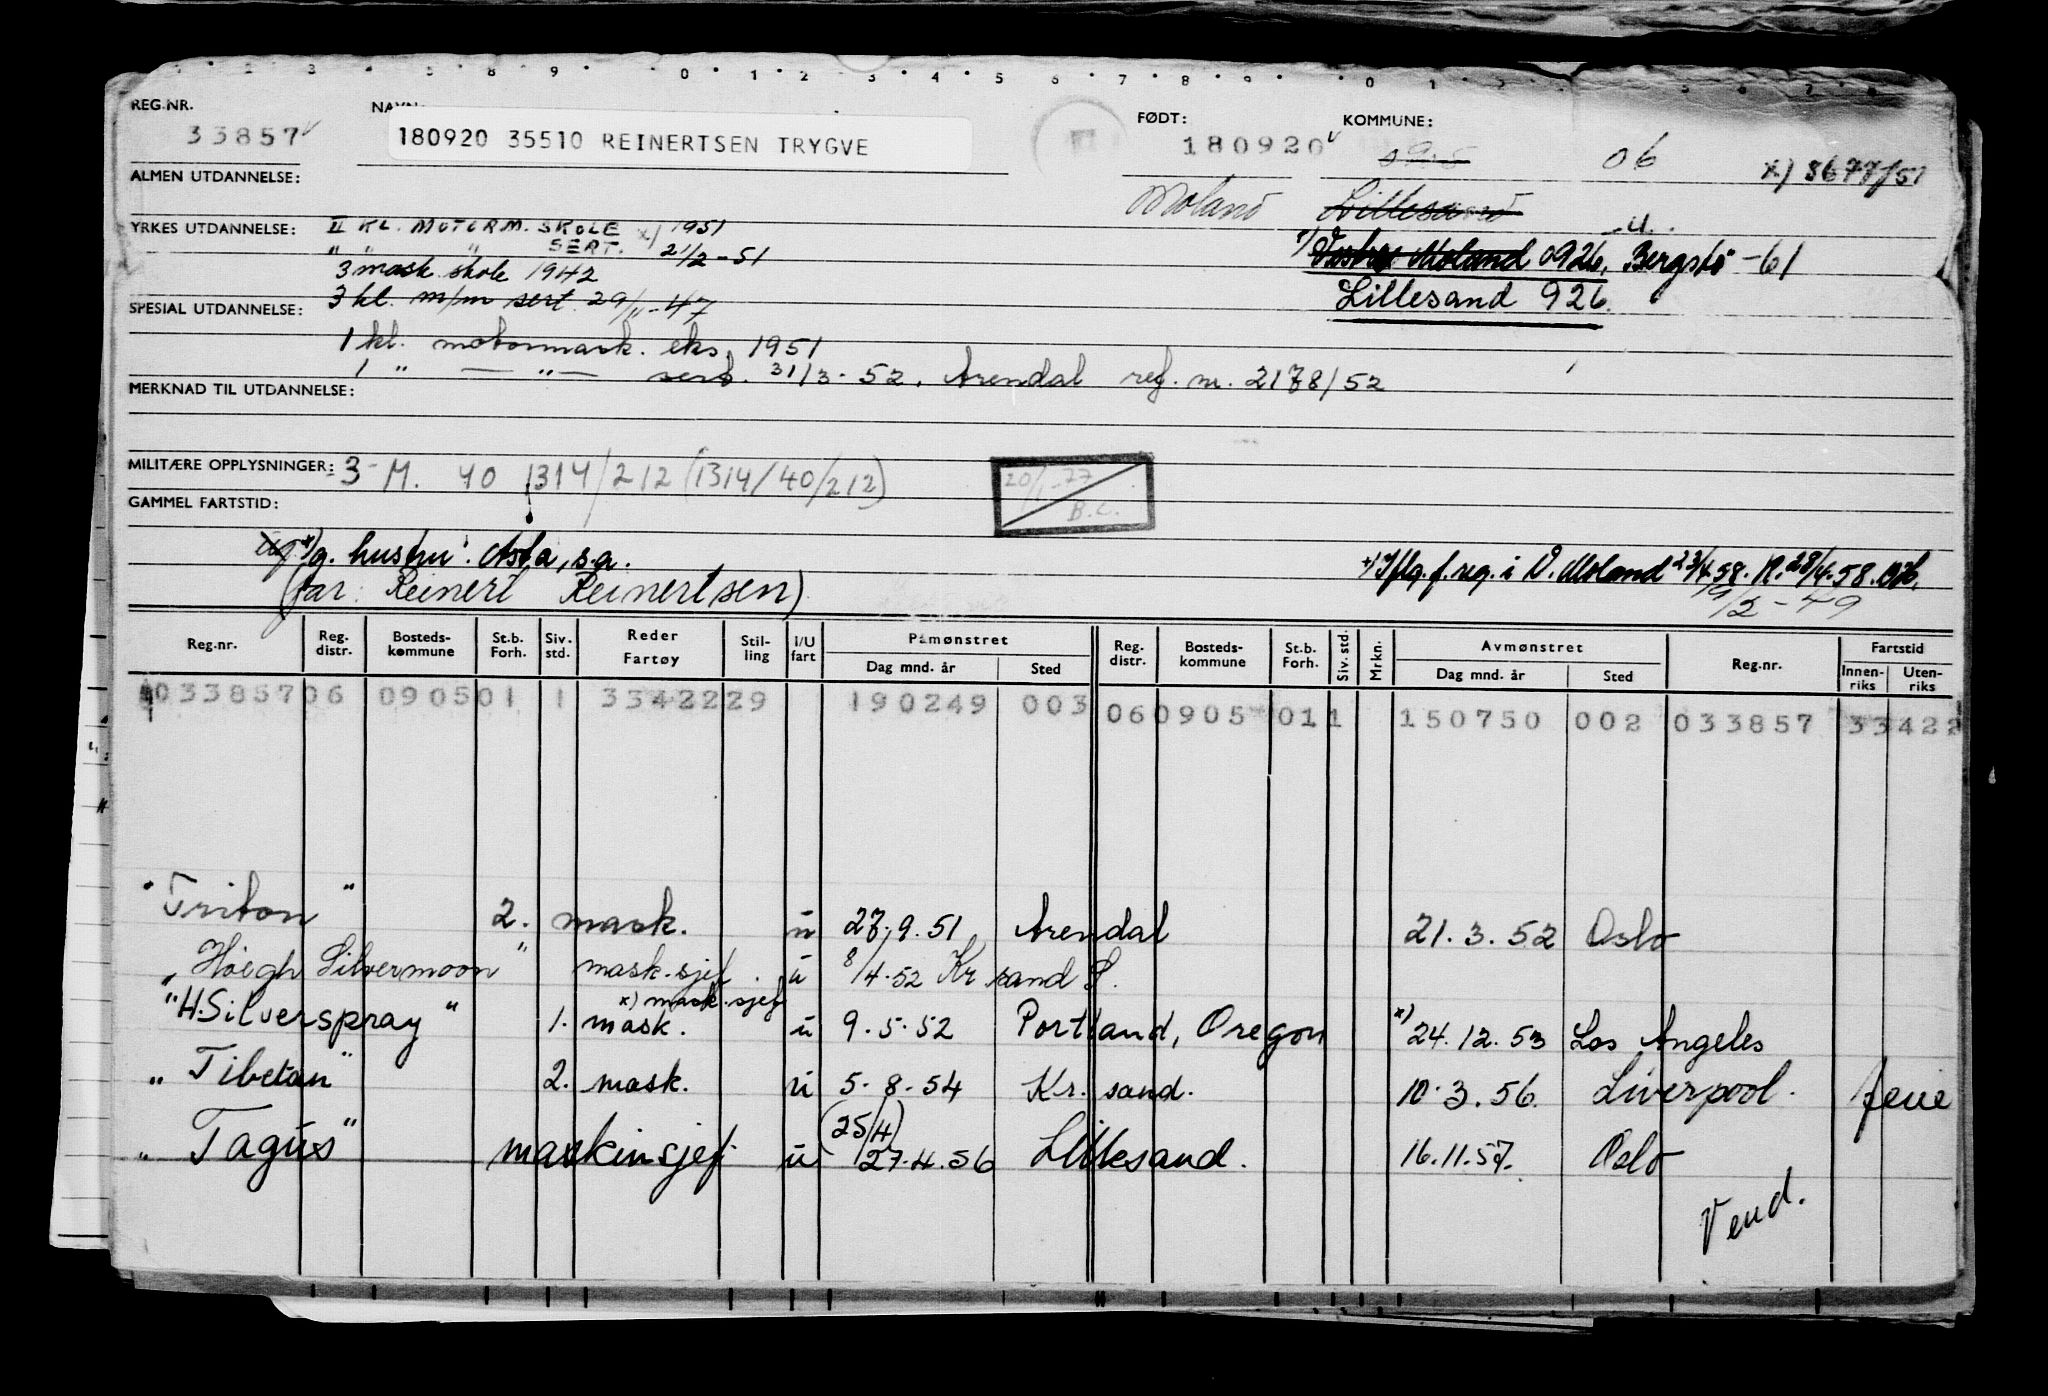 REG.NR. NAVN: FØDT: KOMMUNE:
33857 180920 35510 REINERTSEN TRYGVE 180920 06 x) 8677/51
ALMEN UTDANNELSE: Moland Lillesand
YRKES UTDANNELSE: II KL. MOTORM. SKOLE x) 1951
" " " SERT. 21/2-51
Moland 0926, Bergstø -61
3 mask skole 1942
Lillesand 926.
SPESIAL UTDANNELSE: 3 kl. m/m sert. 29/11-47
1 kl. motormask. eks. 1951
1 " — " — sert. 31/3-52. Arendal ref. nr. 2178/52
MERKNAD TIL UTDANNELSE:
MILITÆRE OPPLYSNINGER: 3-M. 40 1314/212 (1314/40/212)
20/1-77
B.C.
GAMMEL FARTSTID:
x) g. hustru: Asta, s.a.
x) Iflg. f. reg. i V. Moland 23/4.58. R. 28/4.58.
(far: Reinert Reinertsen)
19/2-49
Reg.nr. Reg. distr. Bosteds-kommune St.b. Forh. Siv. std. Reder Fartøy Stil-ling I/U fart Påmønstret Dag mnd. år Sted Reg. distr. Bosteds-kommune St.b. Forh. Siv. std. Mrkn. Avmønstret Dag mnd. år Sted Reg.nr. Fartstid Innen-riks Uten-riks
033857 06 0905 01 1 33422 29 190249 003 06 0905 01 1 150750 002 033857 33422
"Triton" 2. mask. u 27.9.51 Arendal 21.3.52 Oslo
"Höegh Silvermoon" mask.sjef. u 8/4.52 Kr sand S.
x) mask.sjef
"H.Silverspray" 1. mask. u 9.5.52 Portland, Oregon x) 24.12.53 Los Angeles
"Tibetan" 2. mask. u 5.8.54 Kr. sand. 10.3.56. Liverpool. ferie
(25/4)
"Tagus" maskinsjef. u 27.4.56 Lillesand. 16.11.57. Oslo
Vend.